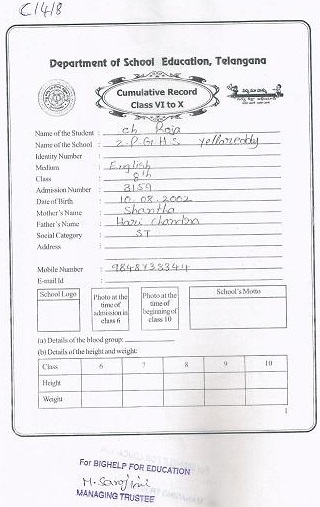 C/4/8
Department of School Education, Telangana
Cumulative Record
Class VI to X
Name of the Student : ch Raja
Name of the School : Z.P.G.H.S Yellareddy
Identity Number :
Medium : English
Class : 8th
Admission Number : 3159
Date of Birth : 10.08.2002
Mother's Name : Shantha
Father's Name : Hari chandra
Social Category : ST
Address :
Mobile Number : 9848733344
E-mail Id :
School Logo
Photo at the time of admission in class 6
Photo at the time of beginning of class 10
School's Motto
(a) Details of the blood group:
(b) Details of the height and weight:
Class 6 7 8 9 10
Height
Weight
1
For BIGHELP FOR EDUCATION
M. Sarojini
MANAGING TRUSTEE